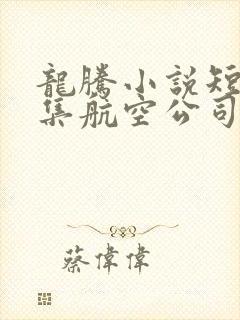 龍騰小説短
集航空公司
蔡偉偉